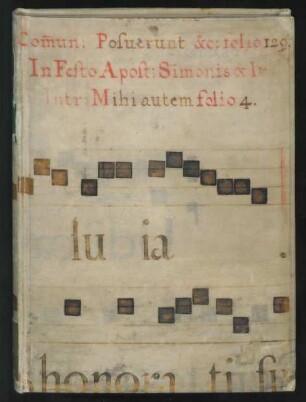 Com̃un: Posuerunt &c: folio 129.
In Festo Apost: Simonis & Iu
Intr: Mihi autem folio 4.
lu ia
honora ti su